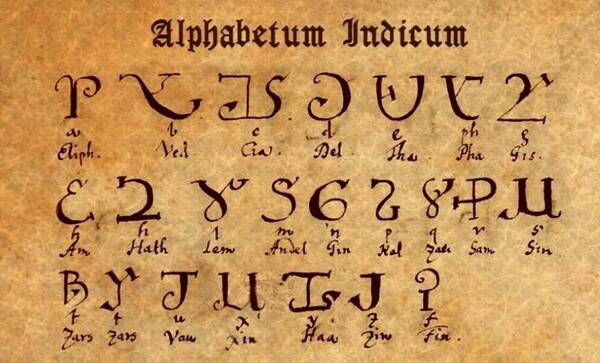 Alphabetum Indicum
a b c d e ph g
Eliph. Ved. Cia. Del. Tha Pha Gis.
h h l m n p q r s
Am Hath Lem Andel Gin Kal Zati Sam Sin
t t u x y z f
Zars Zars Vau Xin Haa Ziw Fin.